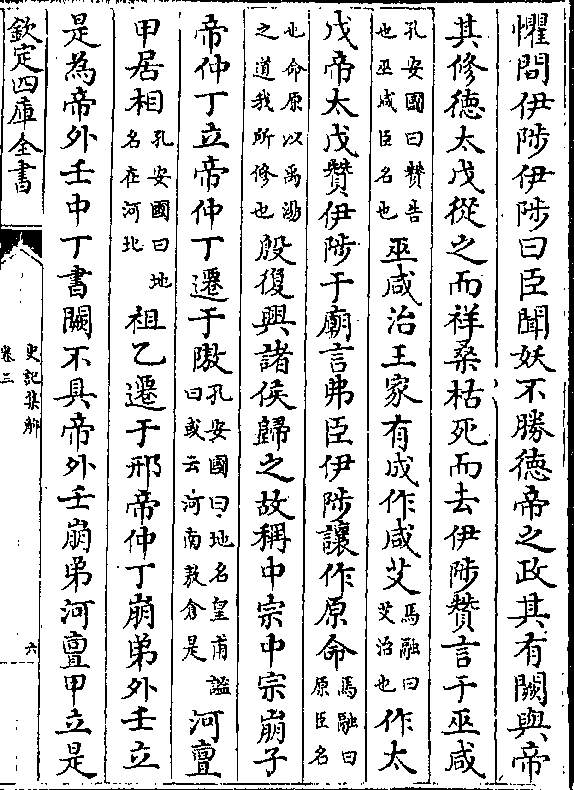 懼問伊陟伊陟曰臣聞妖不勝德帝之政其有闕與帝
其修德太戊從之而祥桑枯死而去伊陟贊言于巫咸
孔安國曰贊告也巫咸臣名也巫咸治王家有成作咸艾馬融曰艾治也作太
戊帝太戊贊伊陟于廟言弗臣伊陟讓作原命馬融曰原臣名
也命原以禹湯之道我所修也殷復興諸侯歸之故稱中宗中宗崩子
帝仲丁立帝仲丁遷于隞孔安國曰地名皇甫謐曰或云河南敖倉是河亶
甲居相孔安國曰地名在河北祖乙遷于邢帝仲丁崩弟外壬立
是為帝外壬中丁書闕不具帝外壬崩弟河亶甲立是
欽定四庫全書
史記集解
卷三
六